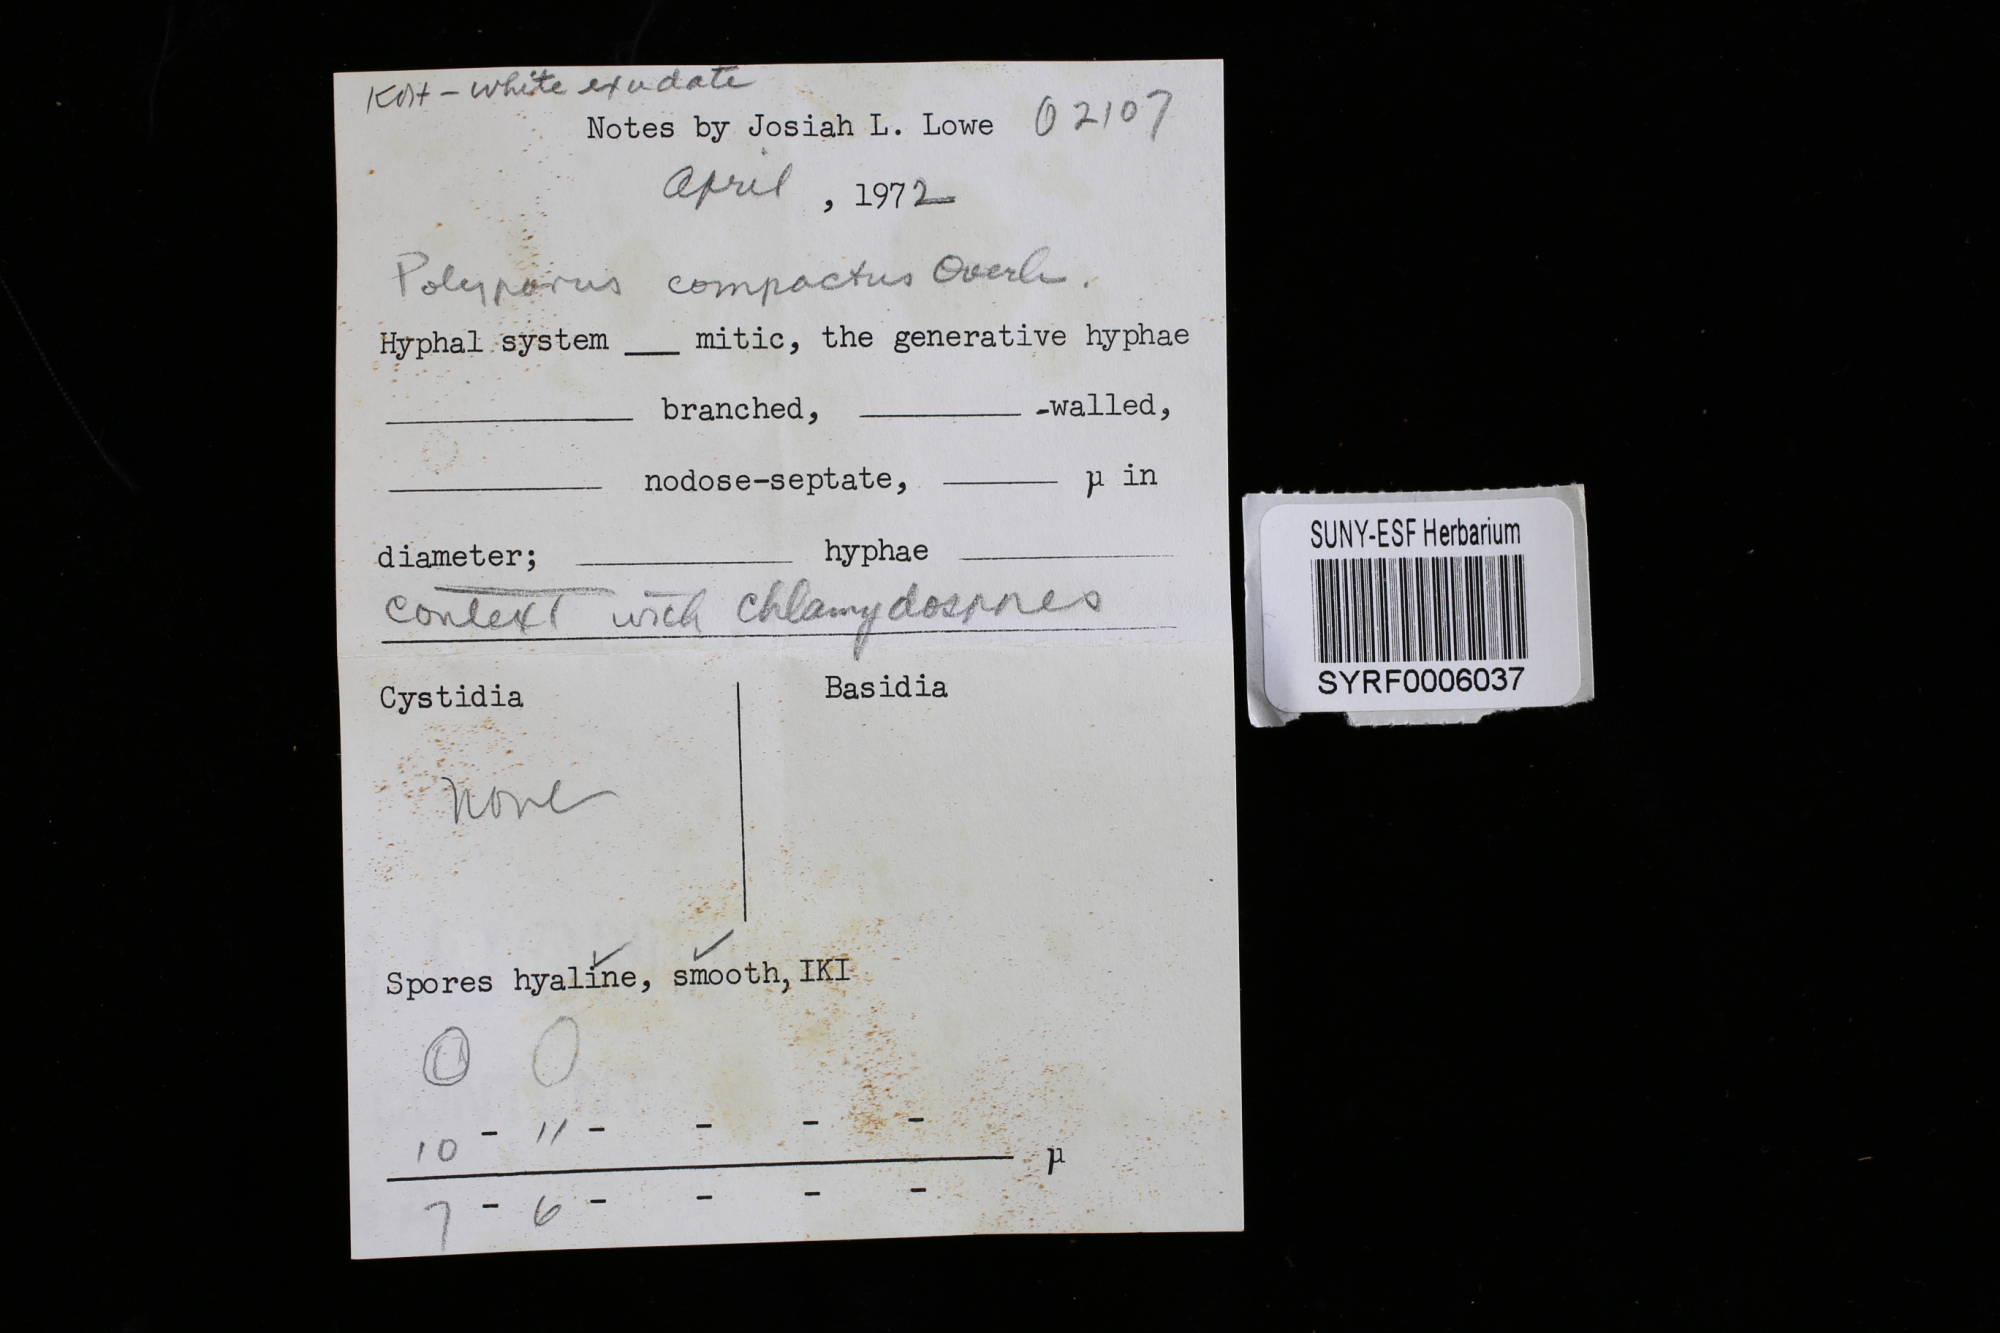 KOH - white exudate
Notes by Josiah L. Lowe 02107
April , 1972
Polyporus compactus Overh.
Hyphal system ___ mitic, the generative hyphae
branched, -walled,
nodose-septate, µ in
diameter; hyphae
context with chlamydospores
Cystidia Basidia
none
Spores hyaline, smooth, IKI
10 - 11 - - - -
µ
7 - 6 - - - -
SUNY-ESF Herbarium
SYRF0006037